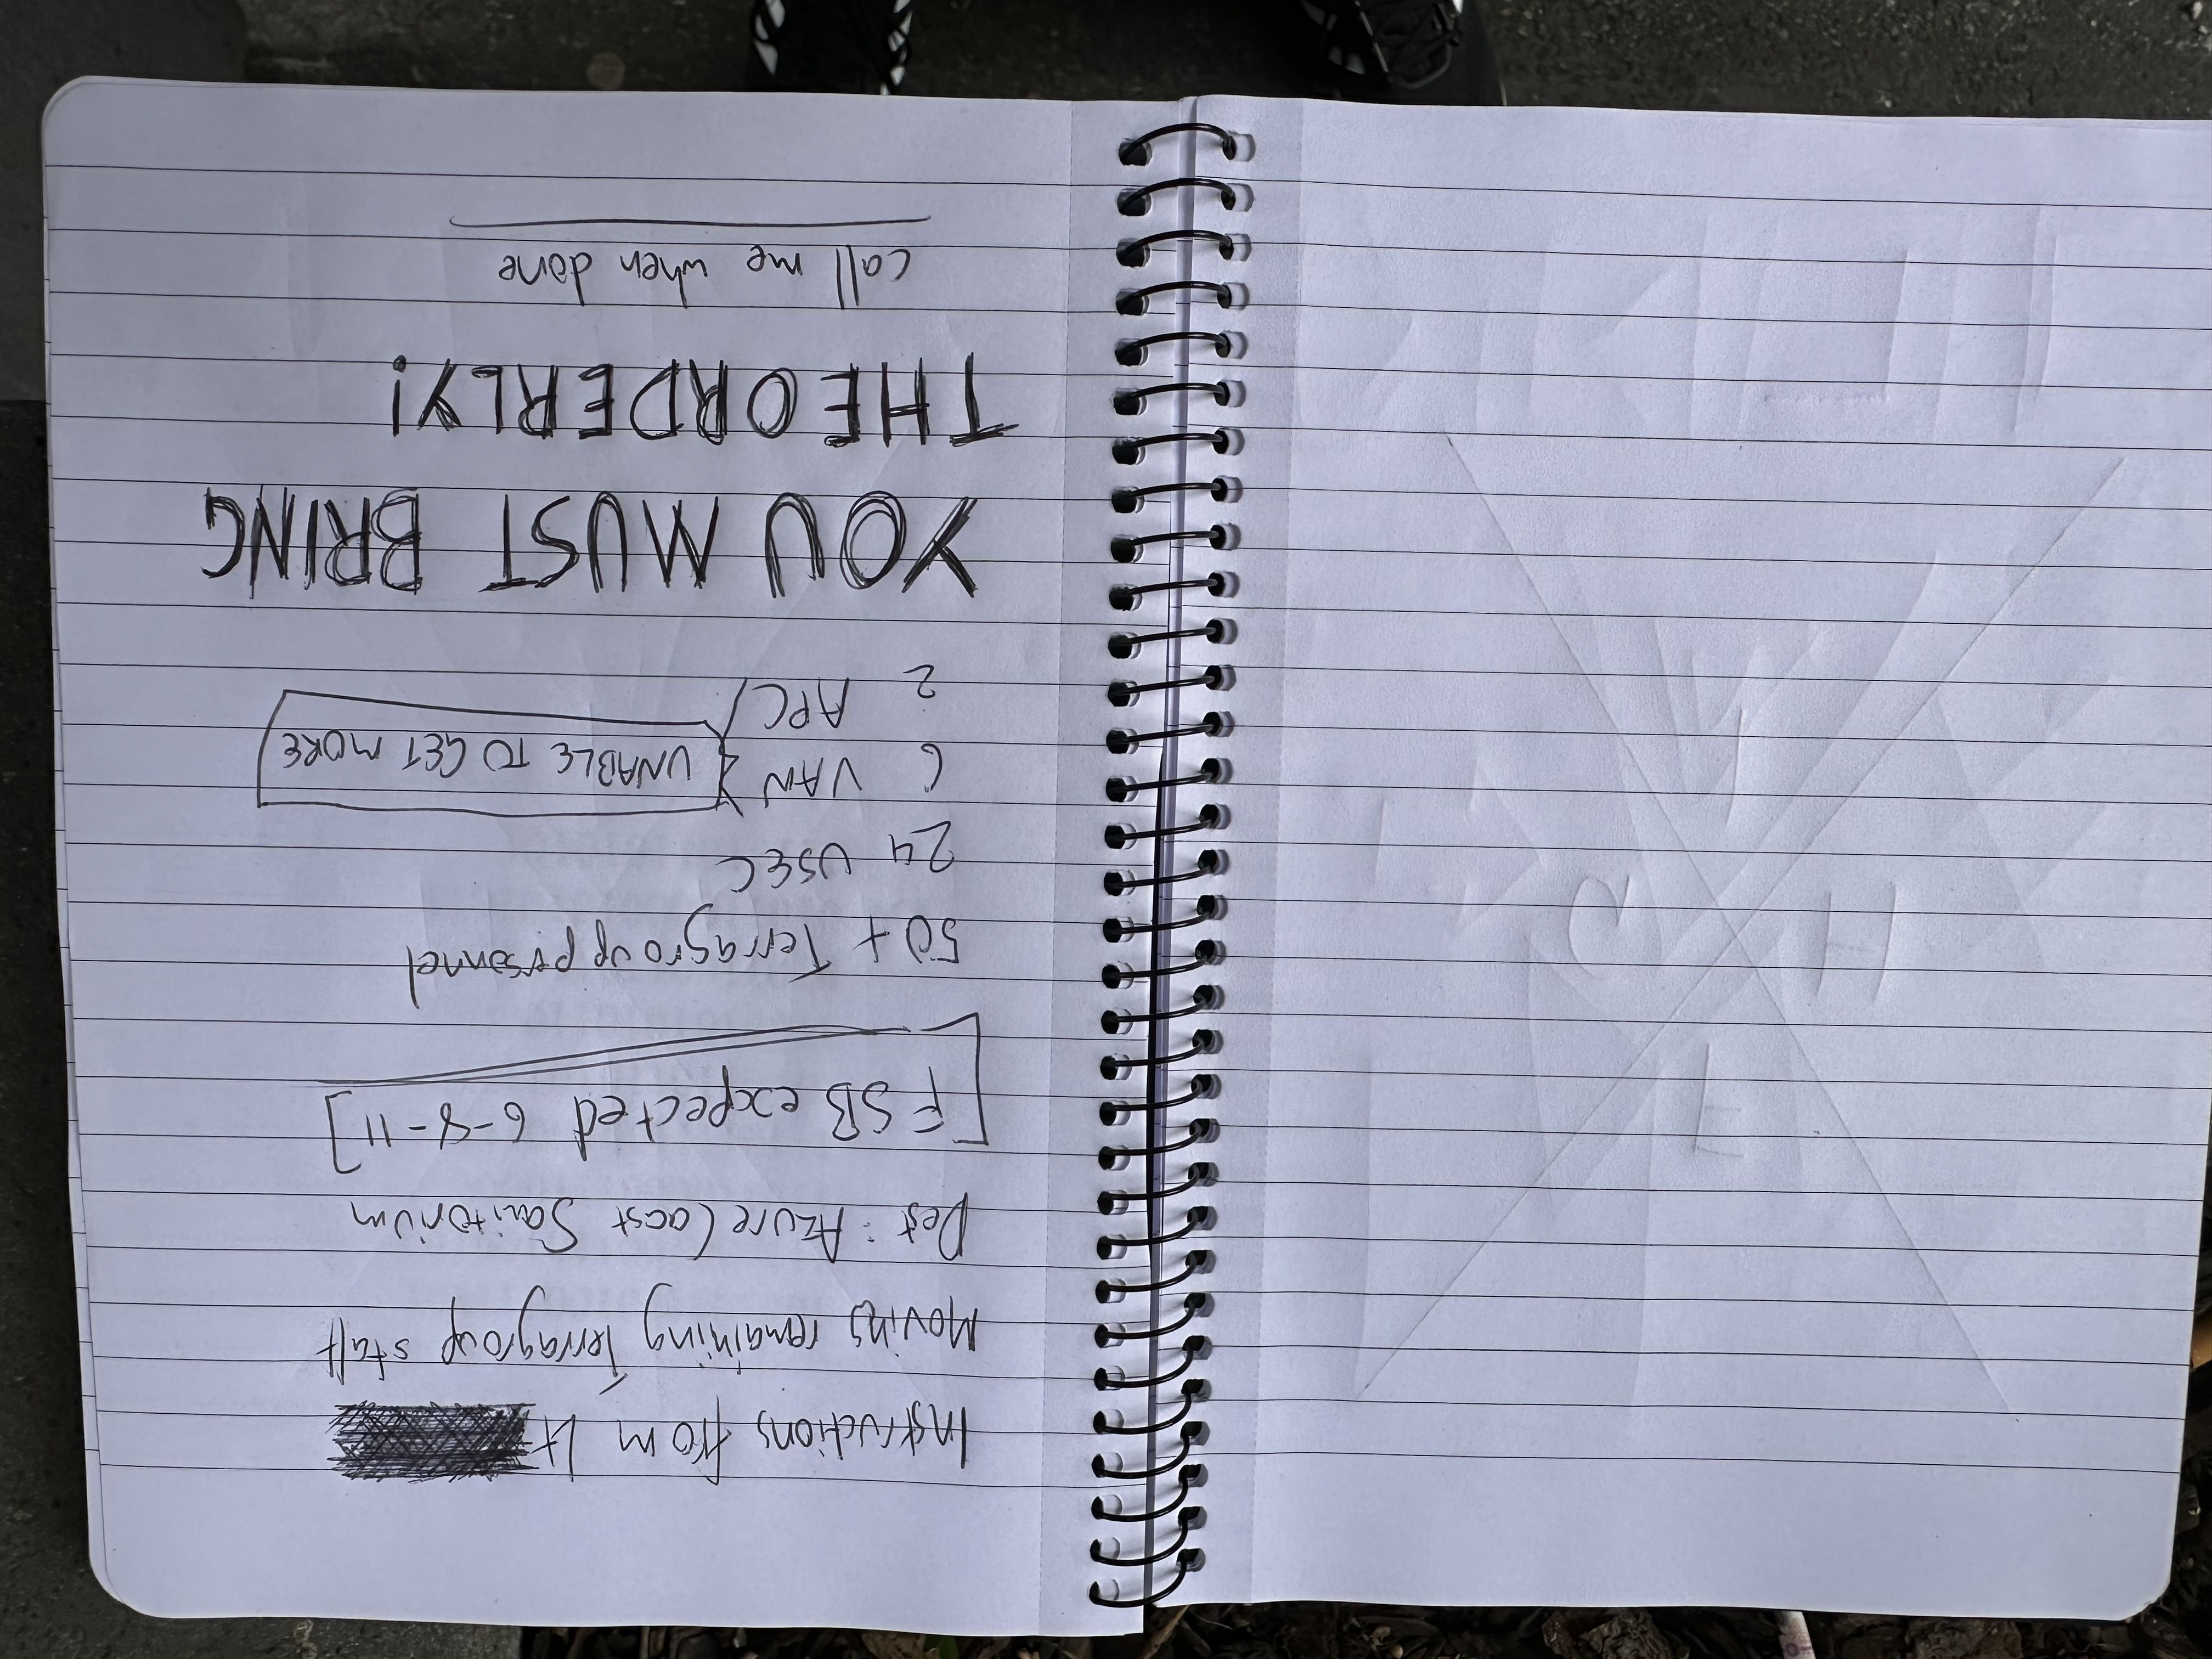 Instructions from Lt
Moving remaining Terragroup staff
Dest : Azure Coast Sanitorium
[FSB expected 6-8-11]
50+ Terragroup personnel
24 USEC
6 VAN
UNABLE TO GET MORE
2 APC
YOU MUST BRING
THE ORDERLY!
call me when done